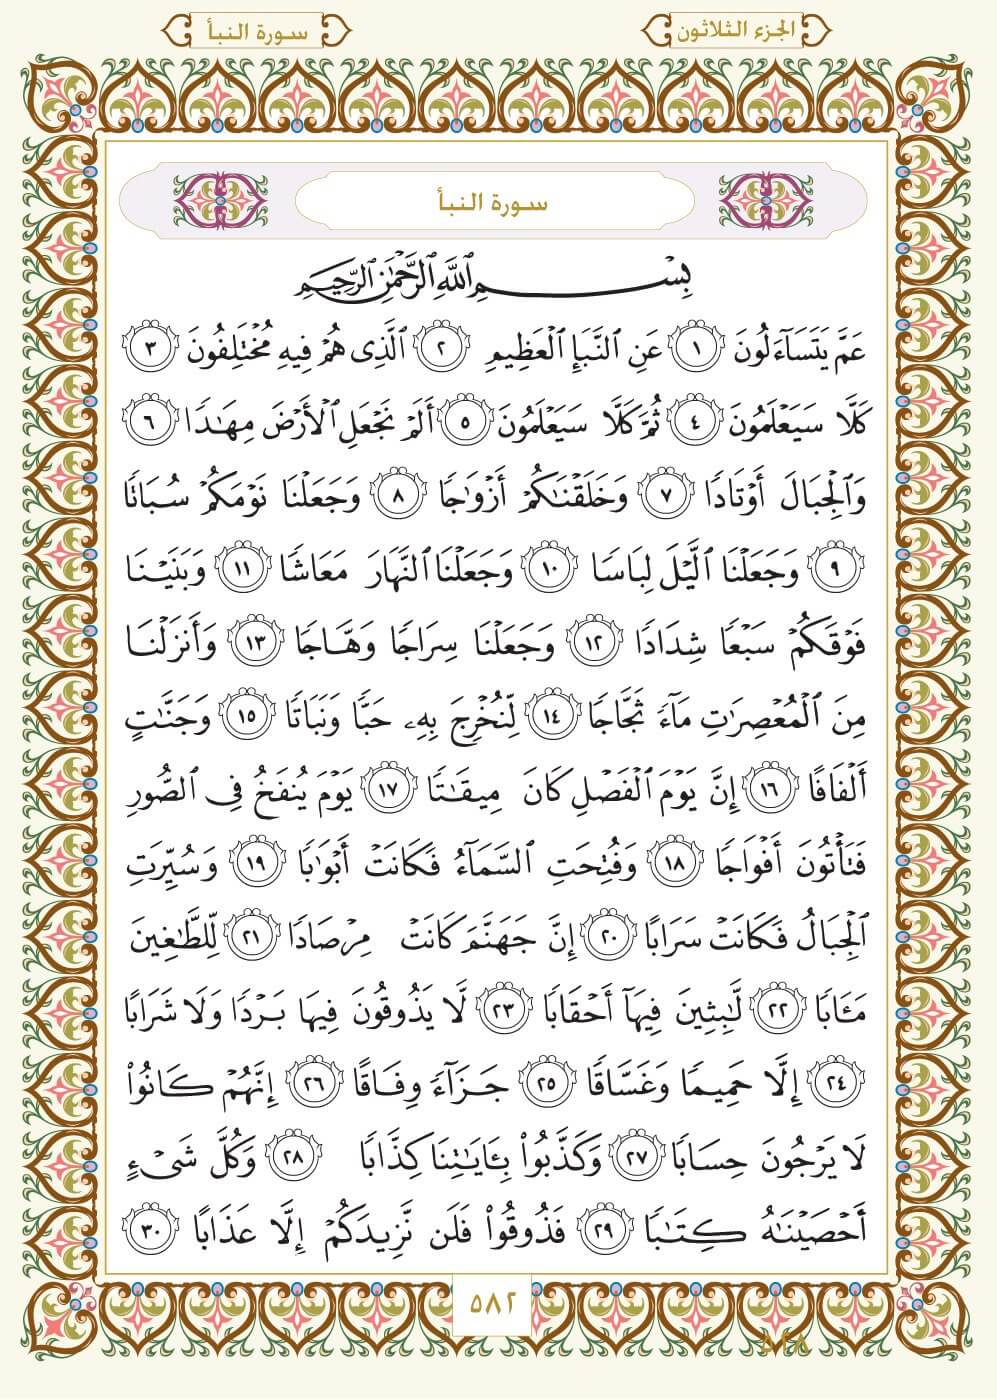 الجزء الثلاثون
سورة النبأ
سورة النبأ
بِسْمِ ٱللَّهِ ٱلرَّحْمَٰنِ ٱلرَّحِيمِ
عَمَّ يَتَسَآءَلُونَ ١ عَنِ ٱلنَّبَإِ ٱلْعَظِيمِ ٢ ٱلَّذِى هُمْ فِيهِ مُخْتَلِفُونَ ٣
كَلَّا سَيَعْلَمُونَ ٤ ثُمَّ كَلَّا سَيَعْلَمُونَ ٥ أَلَمْ نَجْعَلِ ٱلْأَرْضَ مِهَٰدًا ٦
وَٱلْجِبَالَ أَوْتَادًا ٧ وَخَلَقْنَٰكُمْ أَزْوَٰجًا ٨ وَجَعَلْنَا نَوْمَكُمْ سُبَاتًا
٩ وَجَعَلْنَا ٱلَّيْلَ لِبَاسًا ١٠ وَجَعَلْنَا ٱلنَّهَارَ مَعَاشًا ١١ وَبَنَيْنَا
فَوْقَكُمْ سَبْعًا شِدَادًا ١٢ وَجَعَلْنَا سِرَاجًا وَهَّاجًا ١٣ وَأَنزَلْنَا
مِنَ ٱلْمُعْصِرَٰتِ مَآءً ثَجَّاجًا ١٤ لِّنُخْرِجَ بِهِۦ حَبًّا وَنَبَاتًا ١٥ وَجَنَّٰتٍ
أَلْفَافًا ١٦ إِنَّ يَوْمَ ٱلْفَصْلِ كَانَ مِيقَٰتًا ١٧ يَوْمَ يُنفَخُ فِى ٱلصُّورِ
فَتَأْتُونَ أَفْوَاجًا ١٨ وَفُتِحَتِ ٱلسَّمَآءُ فَكَانَتْ أَبْوَٰبًا ١٩ وَسُيِّرَتِ
ٱلْجِبَالُ فَكَانَتْ سَرَابًا ٢٠ إِنَّ جَهَنَّمَ كَانَتْ مِرْصَادًا ٢١ لِّلطَّٰغِينَ
مَـَٔابًا ٢٢ لَّٰبِثِينَ فِيهَآ أَحْقَابًا ٢٣ لَّا يَذُوقُونَ فِيهَا بَرْدًا وَلَا شَرَابًا
٢٤ إِلَّا حَمِيمًا وَغَسَّاقًا ٢٥ جَزَآءً وِفَاقًا ٢٦ إِنَّهُمْ كَانُوا۟
لَا يَرْجُونَ حِسَابًا ٢٧ وَكَذَّبُوا۟ بِـَٔايَٰتِنَا كِذَّابًا ٢٨ وَكُلَّ شَىْءٍ
أَحْصَيْنَٰهُ كِتَٰبًا ٢٩ فَذُوقُوا۟ فَلَن نَّزِيدَكُمْ إِلَّا عَذَابًا ٣٠
٥٨٢